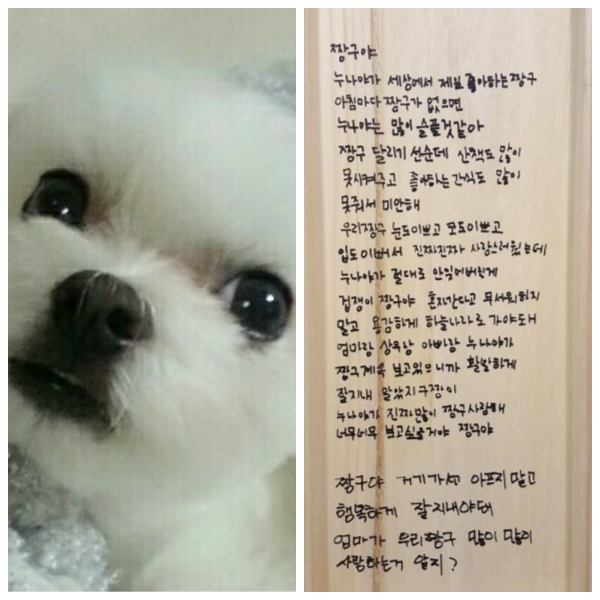 짱구야
누나야가 세상에서 제일 좋아하는짱구
아침마다 짱구가 없으면
누나야는 많이 슬플것같아
짱구 달리기 선순데 산책도 많이
못시켜주고 좋아하는간식도 많이
못줘서 미안해
우리짱구 눈도이쁘고 코도이쁘고
입도이뻐서 진짜진짜 사랑스러웠는데
누나야가 절대로 안잊어버린게
겁쟁이 짱구야 혼자간다고 무서워하지
말고 용감하게 하늘나라로 가야도거
엄마랑 상욱랑 아빠랑 누나야가
짱구계속 보고있으니까 활발하게
잘지내 알았지구짱이
누나야가 진짜많이 짱구사랑해
너무너무 보고싶을거야 짱구야
짱구야 거기가선 아프지말고
행복하게 잘지내야돼
엄마가 우리짱구 많이 많이
사랑하는거 알지?